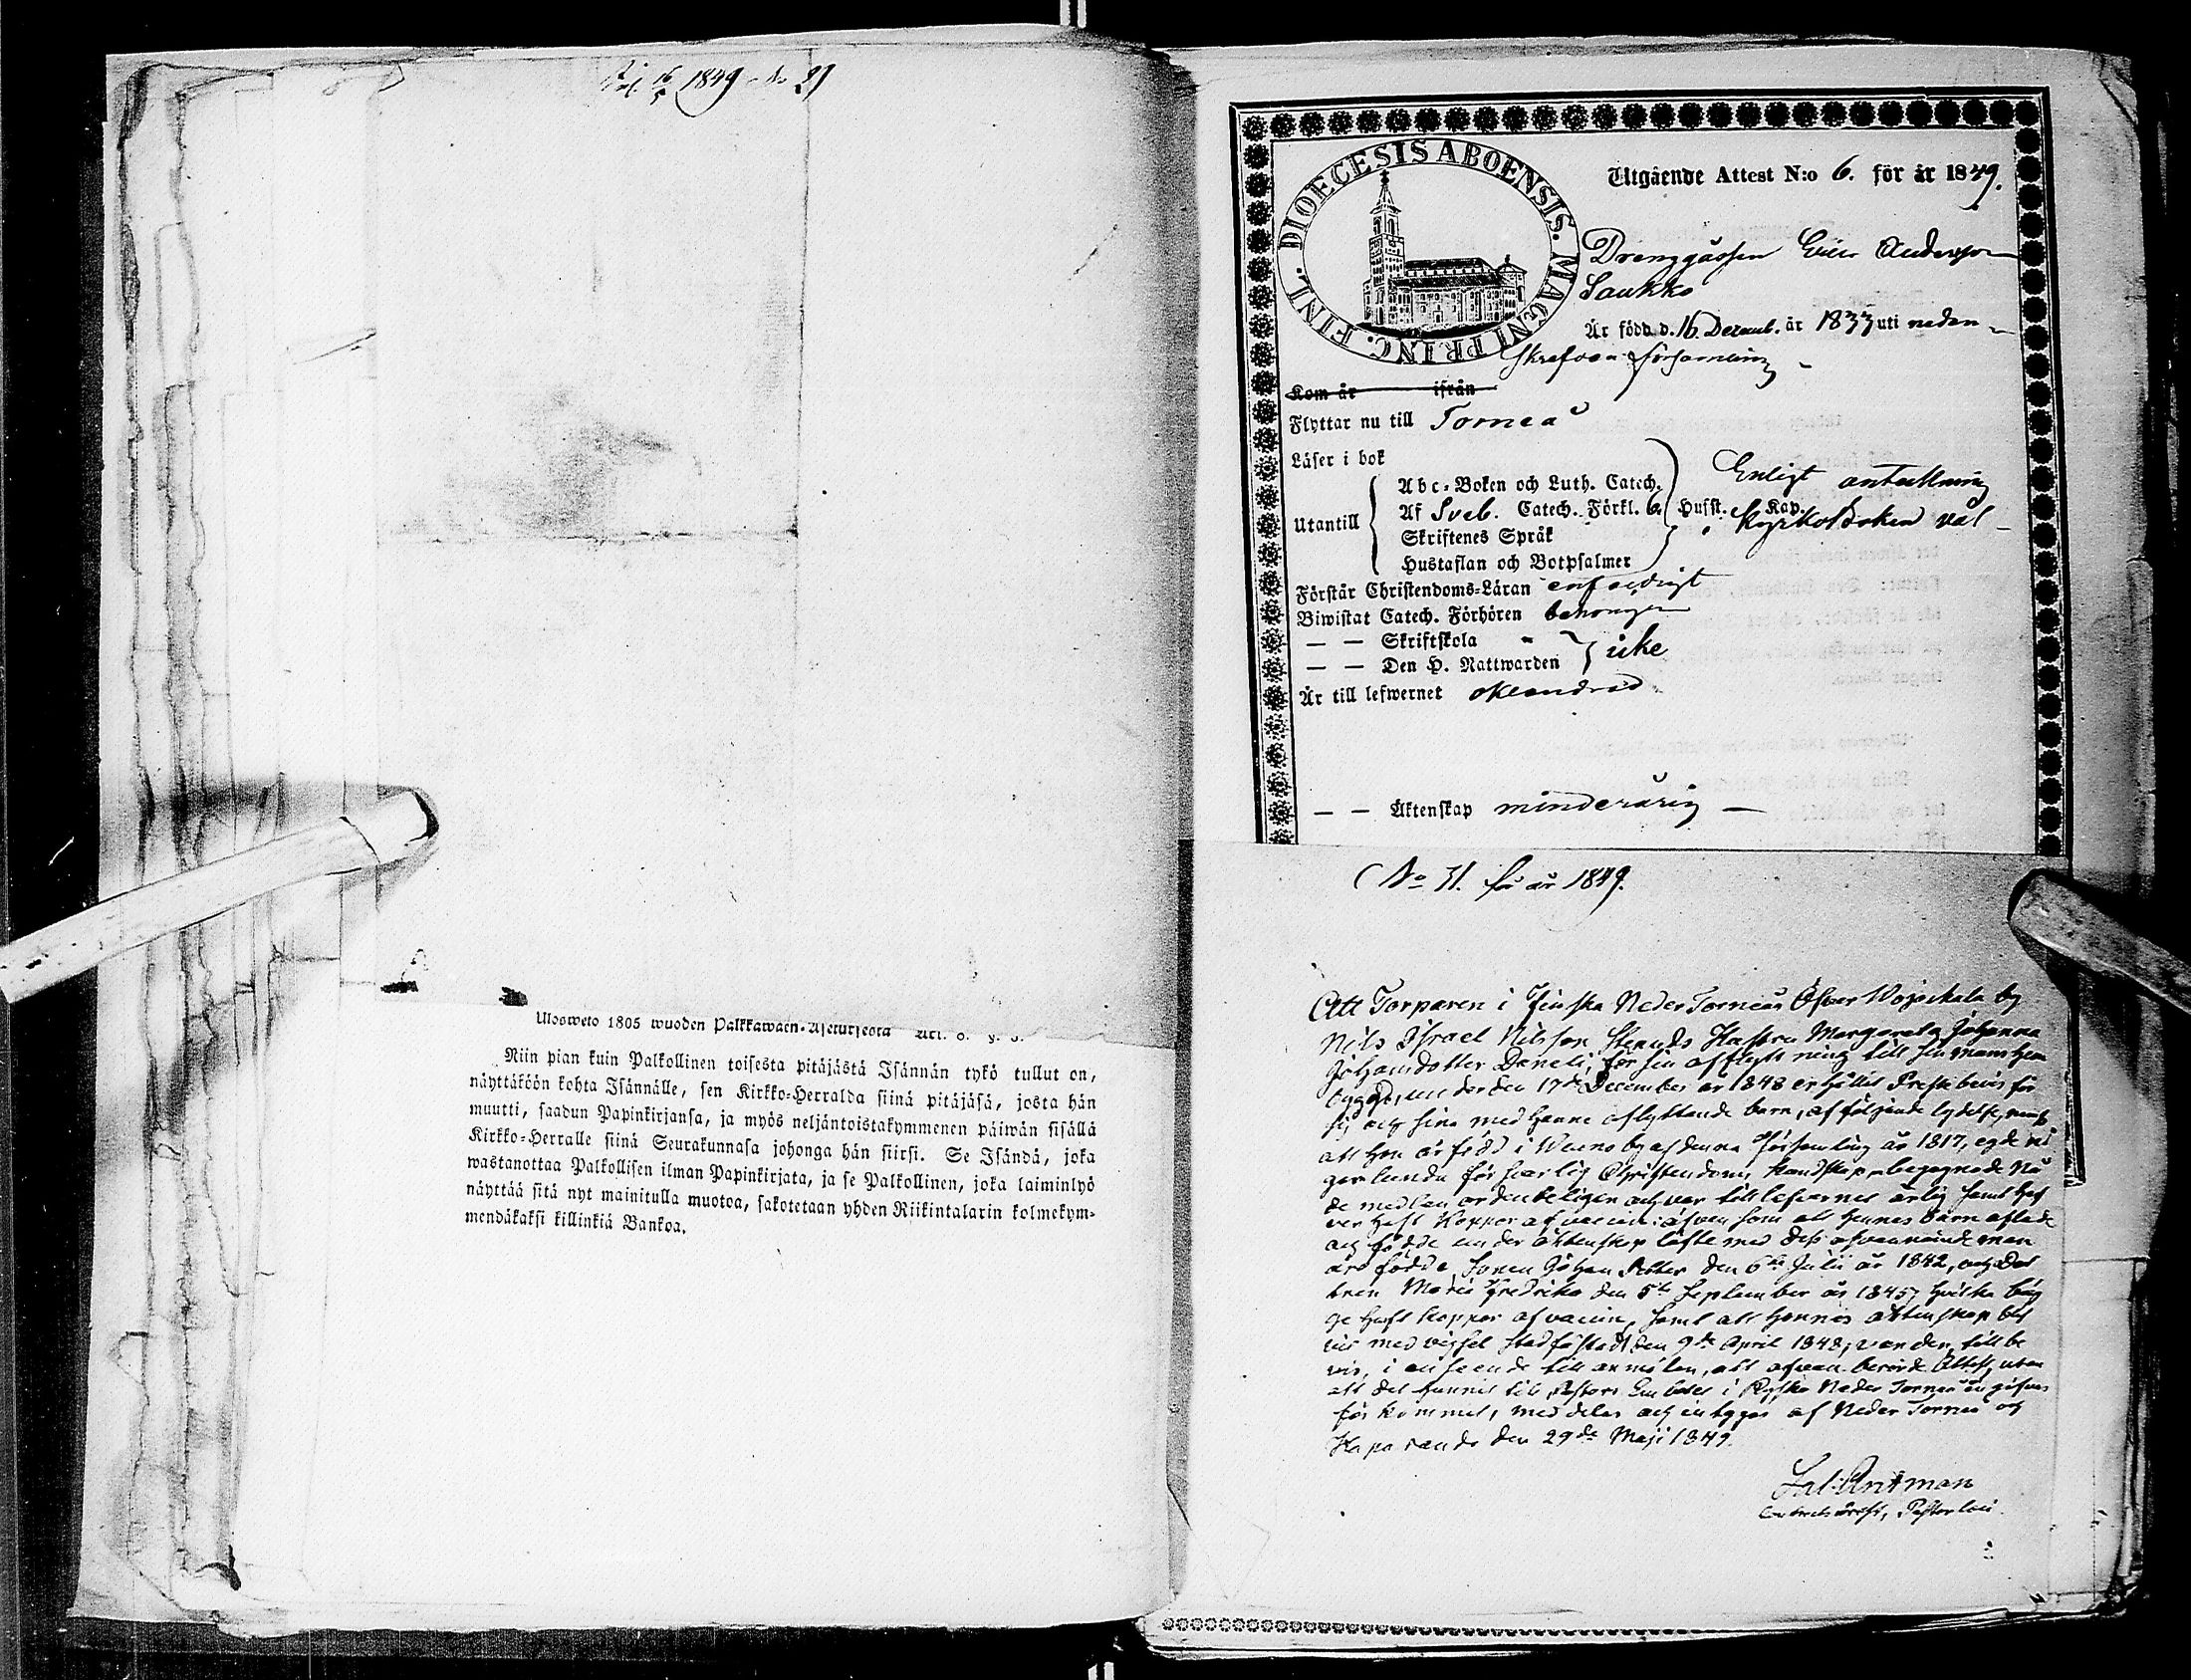 1849 No 29
Ulosweto 1805 wuoden Palkkawäen-Asetuksesta Art. 8. §. 5.
Niin pian kuin Palkollinen toisesta pitäjästä Isännän tykö tullut on,
näyttäköön kohta Isännälle, sen Kirkko-Herralda siinä pitäjäsä, josta hän
muutti, saadun Papinkirjansa, ja myös neljäntoistakymmenen päiwän sisällä
Kirkko-Herralle siinä Seurakunnasa johonga hän siirsi. Se Isändä, joka
wastanottaa Palkollisen ilman Papinkirjata, ja se Palkollinen, joka laiminlyö
näyttää sitä nyt mainitulla muotoa, sakotetaan yhden Riikintalarin kolmekym-
mendäkaksi killinkiä Bankoa.
DIOECESIS ABOENSIS. MAGNI PRINC. FINL.
Utgående Attest N:o 6. för år 1849.
Drenggåssen Eric Andersson
Saukko
Är född d. 16 Decemb. år 1833 uti nedan-
skrefvan församling
Kom år ifrån
Flyttar nu till Torneå
Läser i bok
Utantill
Abc-Boken och Luth. Catech.
Af Sveb. Catech. Förkl. 6. Husst. Kap.
Skriftenes Språk
Hustaflan och Botpsalmer
Enligt anteckning
i Kyrkoboken väl
Förstår Christendoms-Läran enfaldigt
Biwistat Catech. Förhören behörigen
— — Skriftskola
— — Den H. Nattwarden
icke
Är till lefwernet oklandrad
— — Äktenskap minderårig —
No 31. för år 1849.
Att Torparen i Finska Neder Torneå Öfver Wojackala by
Nils Israel Nilsson Stenuds Hustru Margareta Johanna
Johansdotter Daneli, för sin afflyttning till sin mans hem
bygd, under den 17de December år 1848 erhållit Prestebevis för
sig och sina med henne aflyttande barn, af följande lydelse, nemt
att hon är född i Wuono by af denna församling år 1817, egde nö
gerlunda försvarlig Christendoms kundskap, begagnade Nå
demedlen ordenteligen och var till lefvernet ärlig samt haf
ver haft Koppor af vaccin: äfven som att hennes barn aflade
och födde under äktenskaps löfte med dess ofvannämnde man
äro födde Sonen Johan Petter den 6te Julii år 1842, och Dot
tren Maria Fredrika den 5te September år 1845, hvilka båg
ge haft koppor af vaccin, samt att hennes äktenskap blef
vit med vigsel stadfästadt den 9de April 1848; varder, till be
vis, i anseende till anmälan, att ofvan berörde Attest, utan
att det hunnit till Pastors Embetet i Ryska Neder Torneå ingifvas
förkommit, meddelas och intygas af Neder Torneå och
Haparanda den 29de Maji 1849.
Sal: Antman
Pastor loci.